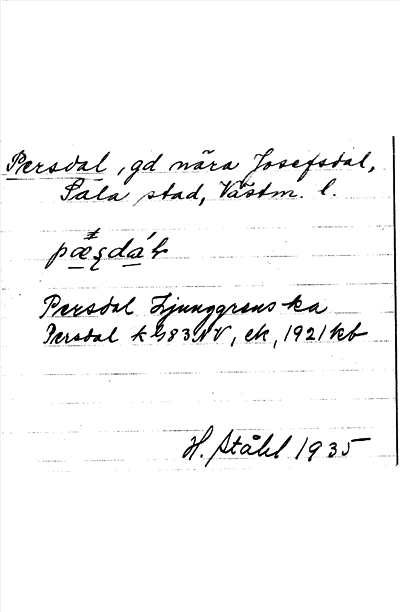 Persdal, gd nära Josefsdal,
Sala stad, Västm. l.
Persdal Ljunggrenska
Persdal k 983 NV, ek, 1921 kb
H. Ståhl 1935